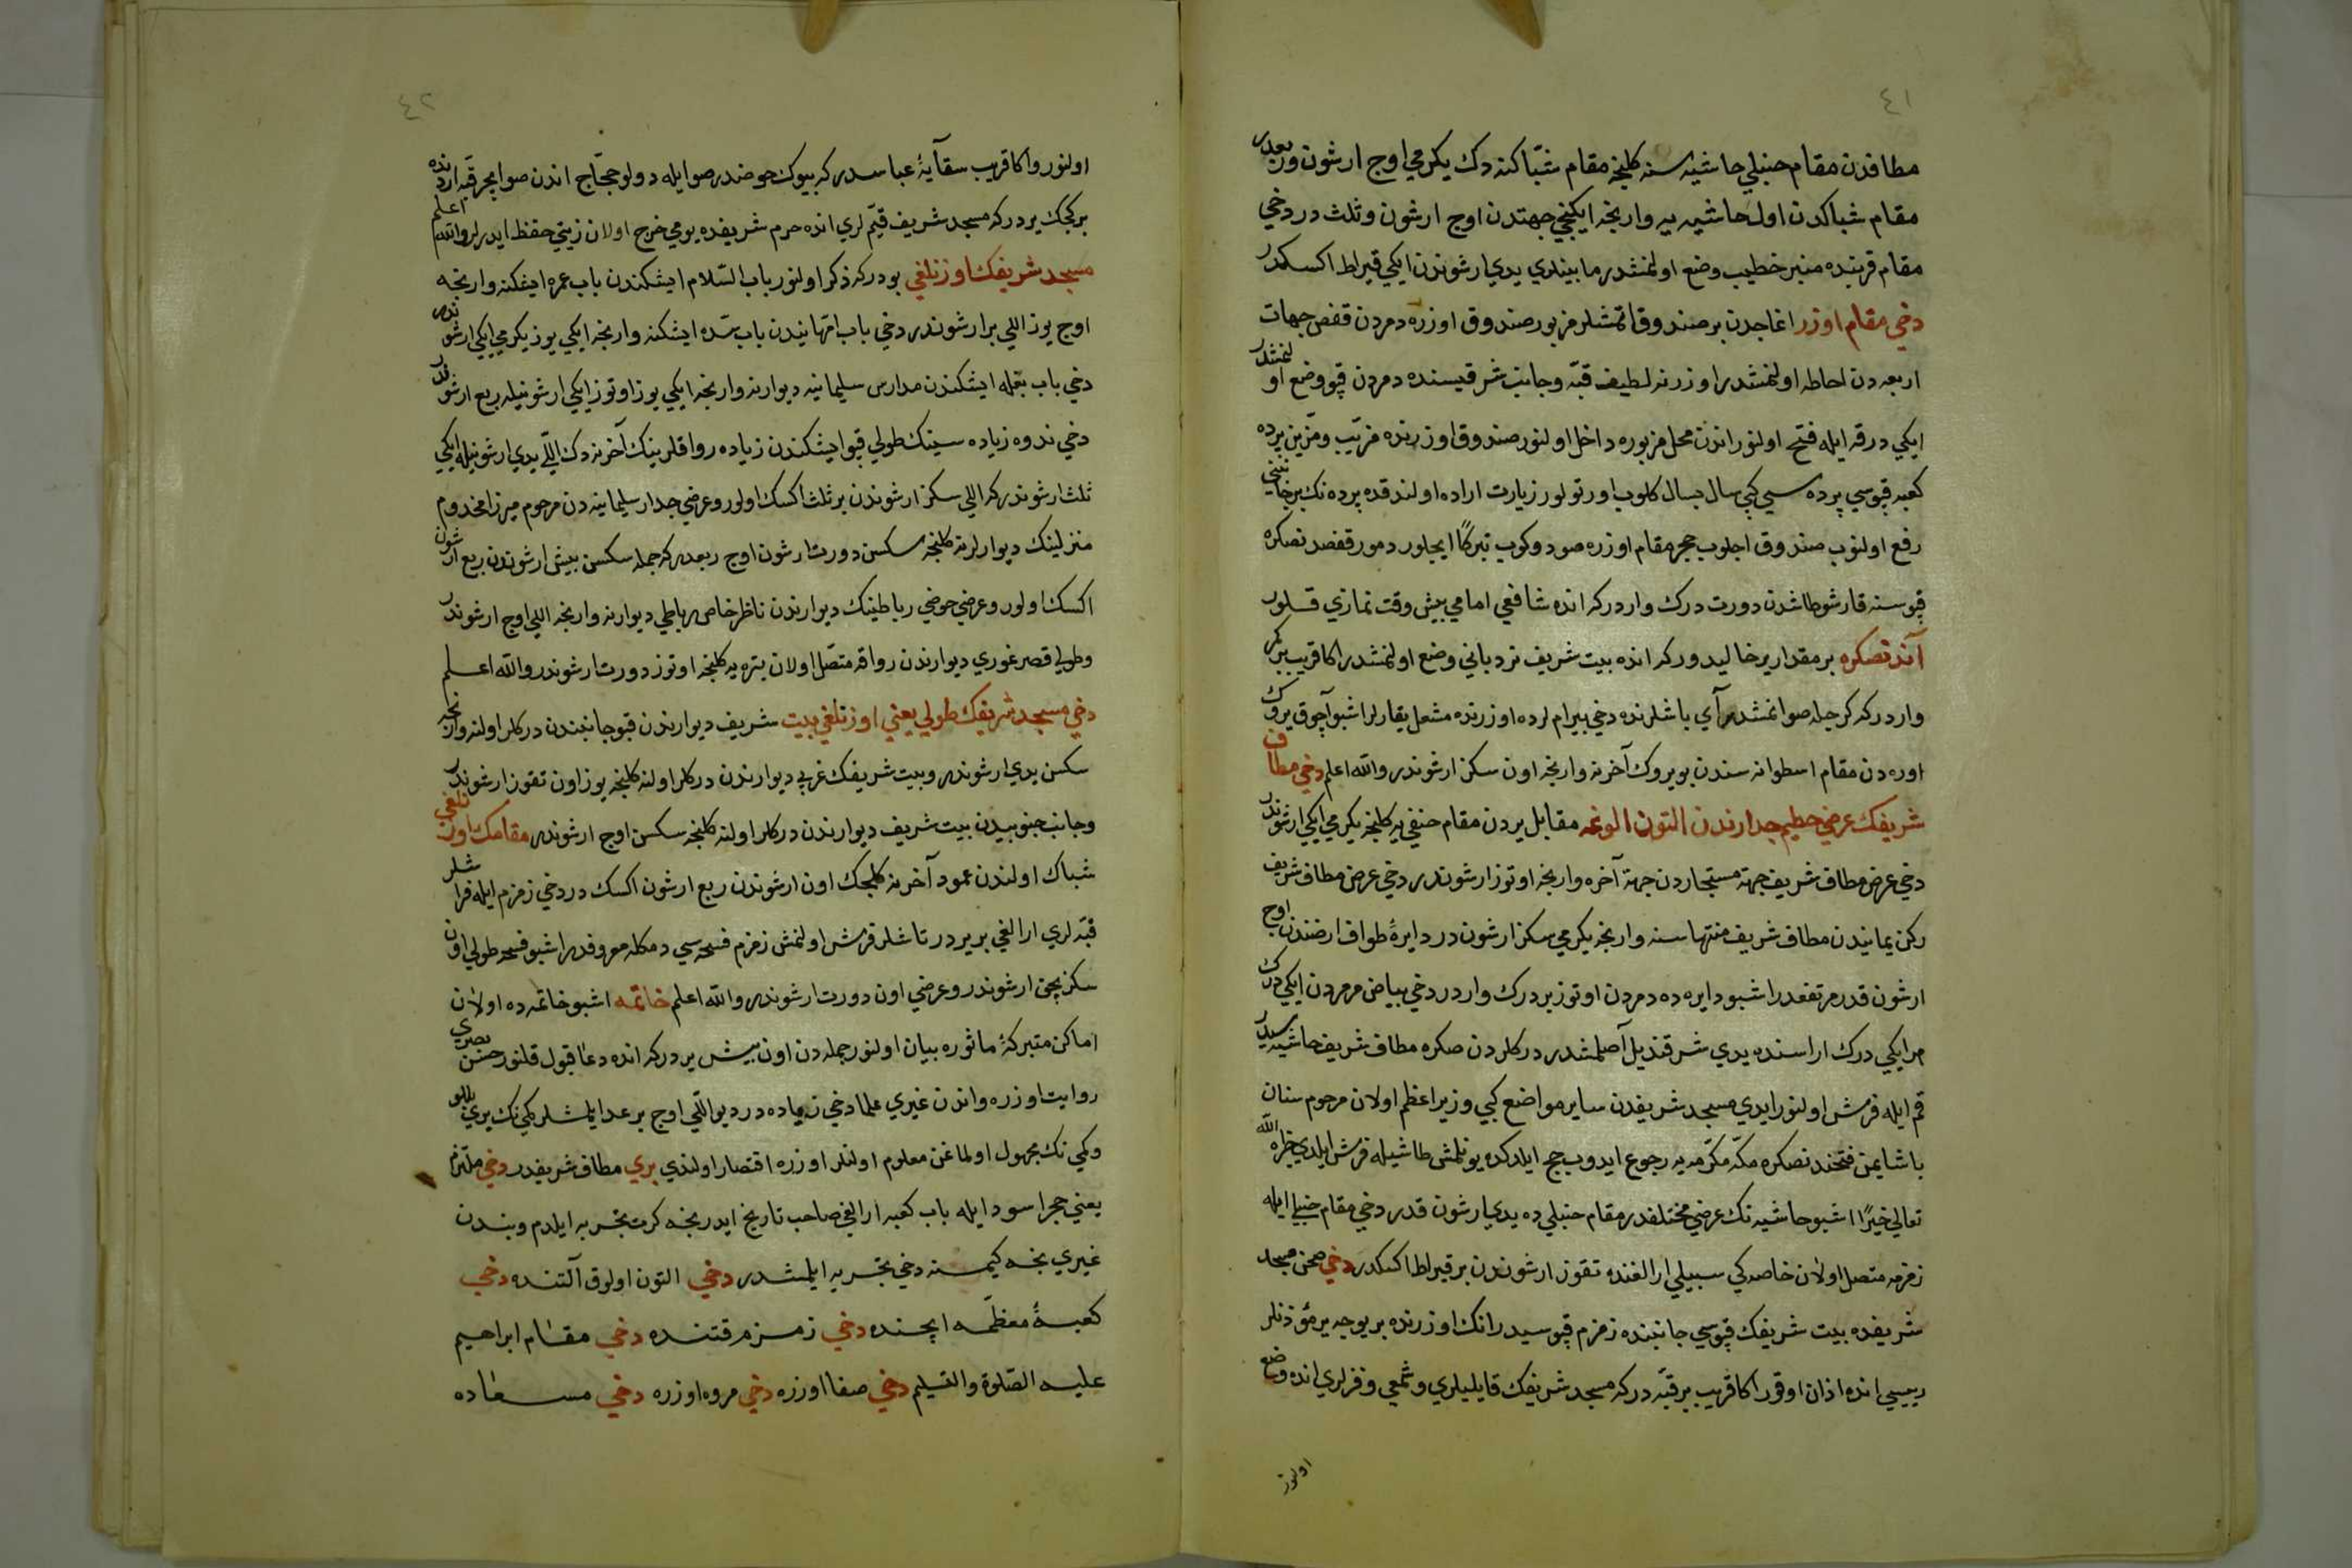 ٤١
مطافدن مقام حنبلي حاشيه سنه كلينجه مقام شبّاكنه دك يكرمي اوچ ارشون وربعدر
مقام شباكدن اول حاشيه يه وارنجه ايكنجي جهتدن اوچ ارشون وثلث در دخي
مقام قربنده منبر خطيب وضع اولنمشدر مابينلري يدي ارشوندن ايكي قيراط اكسكدر
دخي مقام اوزر اغاجدن بر صندوق اتمشلر مزبور صندوق اوزره دمردن قفص جهات
اربعه دن احاطه اولنمشدر اوزرنه لطيف قبّه وجانب شرقيسنده دمردن قپو وضع اولنمشدر
ايكي درقه ايله فتح اولنور اندن محل مزبوره داخل اولنور صندوق اوزرنده مرتّب ومزّين پرده
كعبه قپوسي پرده سي كبي سال بسال كلوب اورتولور زيارت اراده اولندقده پرده نك بر جانبي
رفع اولنوب صندوق اچلوب حجر مقام اوزره صو دوكوب تبركًا ايچلور دمور قفصدنصكره
قپوسنه قارشو طاشدن دورت درك واردر كه انده شافعي امامي بيش وقت نمازي قلور
آندنصكره بر مقدار ير خاليدور كه انده بيت شريف نردباني وضع اولنمشدر اكا قريب بر كمر
واردر كه كرچله صوانمشدر آي باشلرنده دخي بيرام لرده اوزرنده مشعل يقارلر اشبو آچوق يروك
اوره دن مقام اسطوانه سندن بو يروك آخرنه وارنجه اون سكز ارشوندر والله اعلم دخي مطاف
شريفك عرضي حطيم جدارندن التون الوغه مقابل يردن مقام حنفي يه كلنجه يكرمي ايكي ارشوندر
دخي عرض مطاف شريف جهة مستجاردن جهة آخره وارنجه اوتوز ارشوندر دخي عرض مطاف شريف
ركن يمانيدن مطاف شريف منتهاسنه وارنجه يكرمي سكز ارشون در دايرۀ طواف ارضندن اوچ
ارشون قدر مرتفعدر اشبو دايره ده دمردن اوتوز بر درك واردر دخي بياض مرمردن ايكي درك
هر ايكي درك اراسنده يدي شر قنديل آصلمشدر دركلردن صكره مطاف شريف حاشيه سيدر
قم ايله فرش اولنور ايدي مسجد شريفدن ساير مواضع كبي وزير اعظم اولان مرحوم سنان
باشا يمن فتحندنصكره مكّه مكرّمه يه رجوع ايدوب حج ايلدكده يونلمش طاشيله فرش ايلدي جزاه الله
تعالي خيرًا اشبو حاشيه نك عرضي مختلفدر مقام حنبلي ده يدي ارشون قدر دخي مقام حنبلي ايله
زمزمه متصل اولان خاصه كي سبيلي ارالغنده تقوز ارشوندن بر قيراط اكسكدر دخي صحن مسجد
شريفده بيت شريفك قپوسي جانبنده زمزم قپوسيدر انك اوزرنده بر يوجه ير مؤذنلر
رييسي انده اذان اوقور اكا قريب بر قبّه در كه مسجد شريفك قايليلري وشمعي وفنرلري انده وضع
اولنور
٤٢
اولنور واكا قريب سقآيۀ عباسدر كه بيوك حوضدر صوايله دولو حجّاج اندن صو ايچر قبّه اردنده
بر كچك يردر كه مسجد شريف قيّم لري انده حرم شريفده يومي خرج اولان زيتي حفظ ايدرلر والله اعلم
مسجد شريفك اوزنلغي بودر كه ذكر اولنور باب السّلام ايشكندن باب عمره ايشكنه وارنجه
اوچ يوز اللي بر ارشوندر دخي باب امّهانيدن باب سدّه ايشكنه وارنجه ايكي يوز يكرمي ايكي ارشوندر
دخي باب بغله ايشكندن مدارس سليمانيه ديوارنه وارنجه ايكي يوز اوتوز ايكي ارشونيله ربع ارشوندر
دخي ندوه زياده سينك طولي قپو ايشكندن زياده رواقلرينك آخرنه دك اللي يدي ارشونيله ايكي
ثلث ارشوندر كه اللي سكز ارشوندن بر ثلث اكسك اولور وعرضي جدار سليمانيه دن مرحوم ميرزا مخدوم
منزلينك ديوارلرنه كلنجه سكسن دورت ارشون اوچ ربعدر كه جمله سكسن بيش ارشوندن ربع ارشون
اكسك اولور وعرضي حوضي رباطينك ديوارندن ناظر خاص رباطي ديوارنه وارنجه اللي اوچ ارشوندر
وطولي قصر غوري ديوارندن رواقه متصّل اولان يتره يه كلنجه اوتوز دورت ارشوندر والله اعلم
دخي مسجد شريفك طولي يعني اوزنلغي بيت شريف ديوارندن قپو جانبندن دركلر اولنه وارنجه
سكسن يدي ارشوندر وبيت شريفك غربي ديوارندن دركلر اولنه كلنجه يوز اون تقوز ارشوندر
وجانب جنوبيدن بيت شريف ديوارندن دركلر اولنه كلنجه سكسن اوچ ارشوندر مقامك اوزنلغي
شباك اولندن عمود آخرنه كلجك اون ارشوندن ربع ارشون اكسك در دخي زمزم ايله فراشلر
قبّه لري ارالغي بر يردر تاشلر فرش اولنمش زمزم فسحه سي دمكله معروفدر اشبو فسحه طولي اون
سكز بچق ارشوندر وعرضي اون دورت ارشوندر والله اعلم خاتمه اشبو خاتمه ده اولان
اماكن متبركۀ ماثوره بيان اولنور جمله دن اون بيش يردر كه انده دعا قبول قلنور حسن بصري
روايت اوزره واندن غيري علما دخي زياده در ديو اللي اوچ ير عد ايلمشلر كمي نك يري بللو
وكمي نك مجهول اولماغن معلوم اولنلر اوزره اقتصار اولندي بري مطاف شريفدر دخي ملتزم
يعني حجر اسود ايله باب كعبه ارالغي صاحب تاريخ ايدر نجه كرت تجربه ايلدم وبندن
غيري نجه كيمسنه دخي تجربه ايلمشدر دخي التون اولوق آلتنده دخي
كعبۀ معظّمه ايچنده دخي زمزم قتنده دخي مقام ابراهيم
عليه الصّلوة والتسليم دخي صفا اوزره دخي مروه اوزره دخي مسعاده